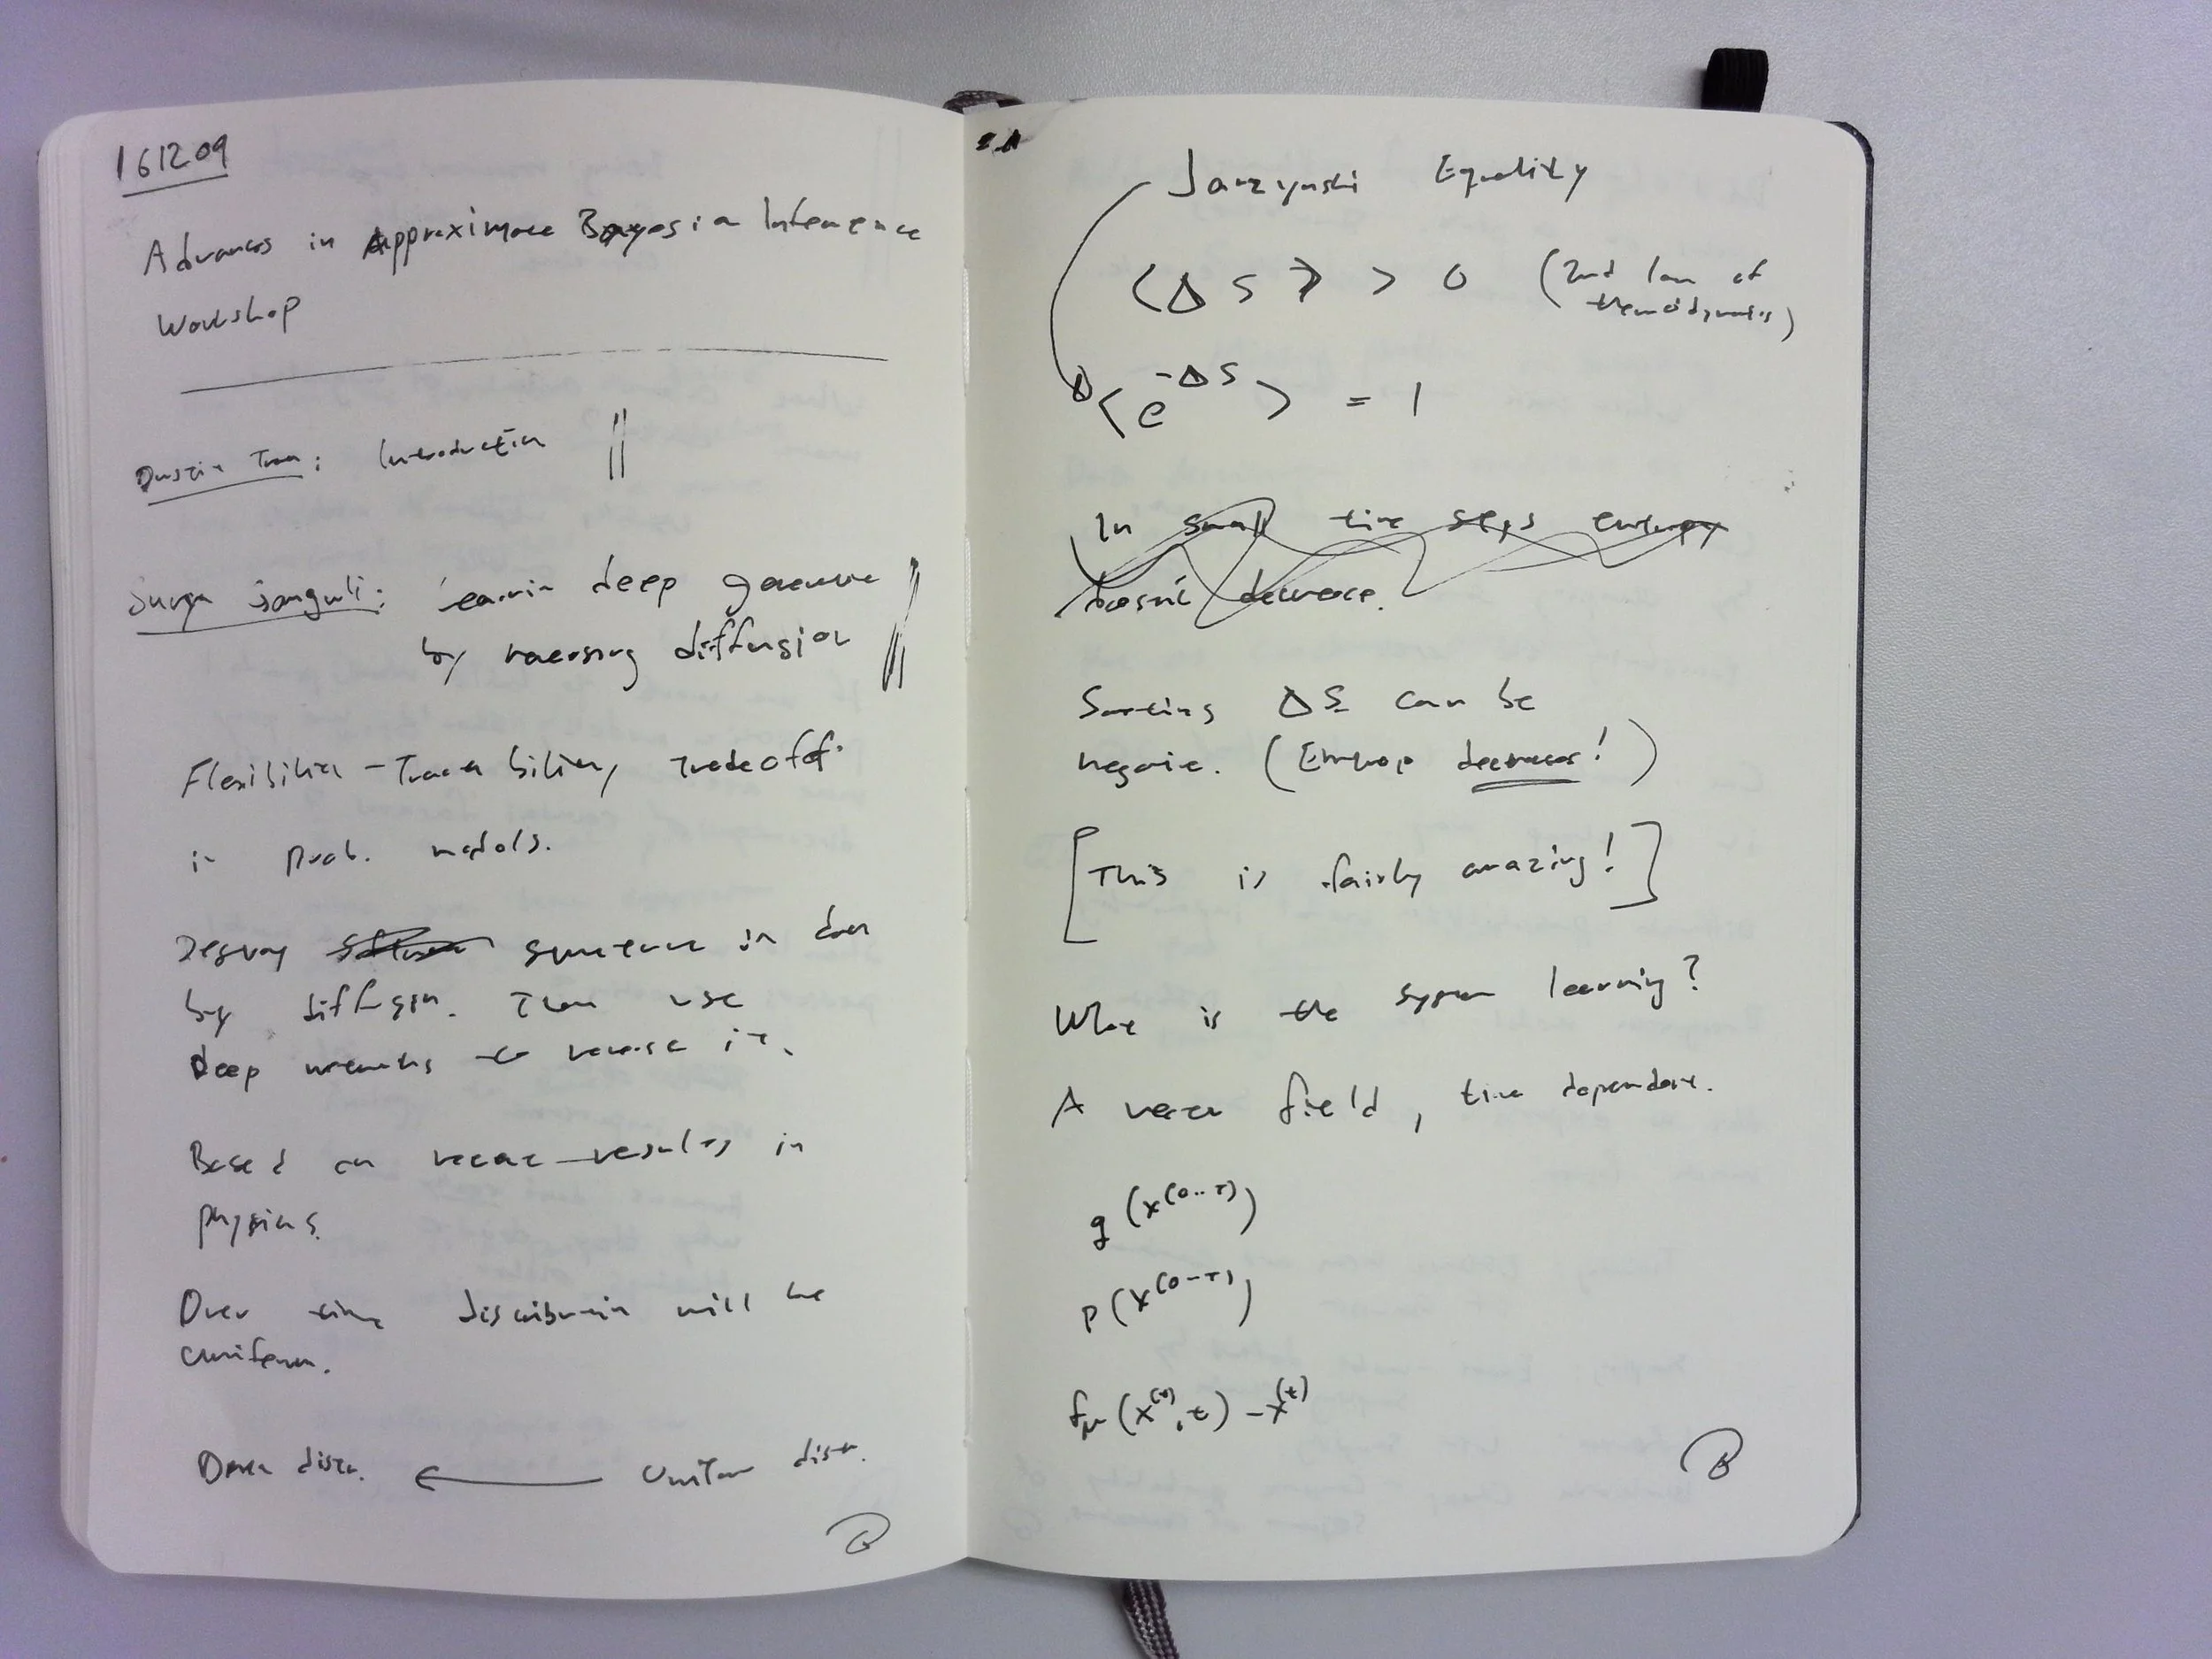 161209
Advances in Approximate Bayesian Inference
Workshop
Dustin Tran: Introduction
Surya Ganguli: Learnin deep generative
by reversing diffusion
Flexibility - Tractability tradeoff
in prob. models.
Destroy structure in data
by diffusion. Then use
deep networks to reverse it.
Based on recent results in
physics.
Over time distribution will be
uniform.
Data distr. ← Uniform distr.
Jarzynski Equality
⟨ΔS⟩ > 0 (2nd law of
thermodynamics)
⟨e^{-ΔS}⟩ = 1
In small time steps entropy
doesnt decrease.
Sometims ΔS can be
negative. (Entropy decreases!)
[This is fairly amazing!]
What is the system learning?
A vector field, time dependent.
q(x^{(0..T)})
p(x^{(0-T)})
f_μ(x^{(t)}, t) - x^{(t)}